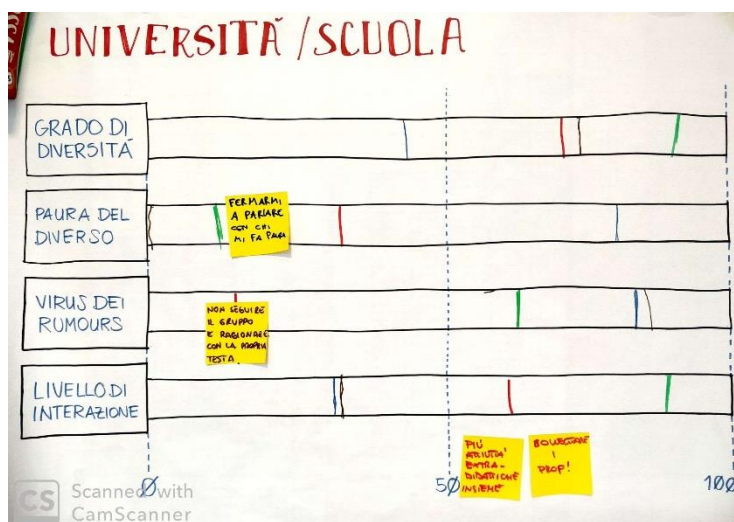 UNIVERSITÀ / SCUOLA
GRADO DI
DIVERSITÀ
PAURA DEL
DIVERSO
FERMARMI
A PARLARE
CON CHI
MI FA PAURA
VIRUS DEI
RUMOURS
NON SEGUIRE
IL GRUPPO
E RAGIONARE
CON LA PROPRIA
TESTA.
LIVELLO DI
INTERAZIONE
PIÙ
ATTIVITA'
EXTRA-
DIDATTICHE
INSIEME
I
PROF!
0
50
100
CS Scanned with
CamScanner